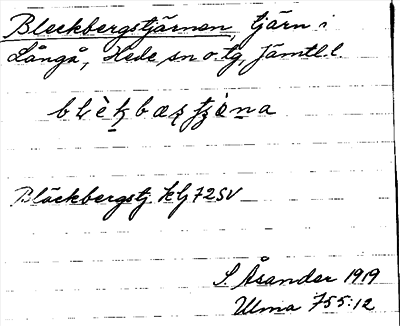 Bleckbergstjärnen, tjärn i
Långå, Hede sn o. tg, Jämtl. l.
Bläckbergstj. klj 72 SV
S. Åsander 1919
Ulma 755:12